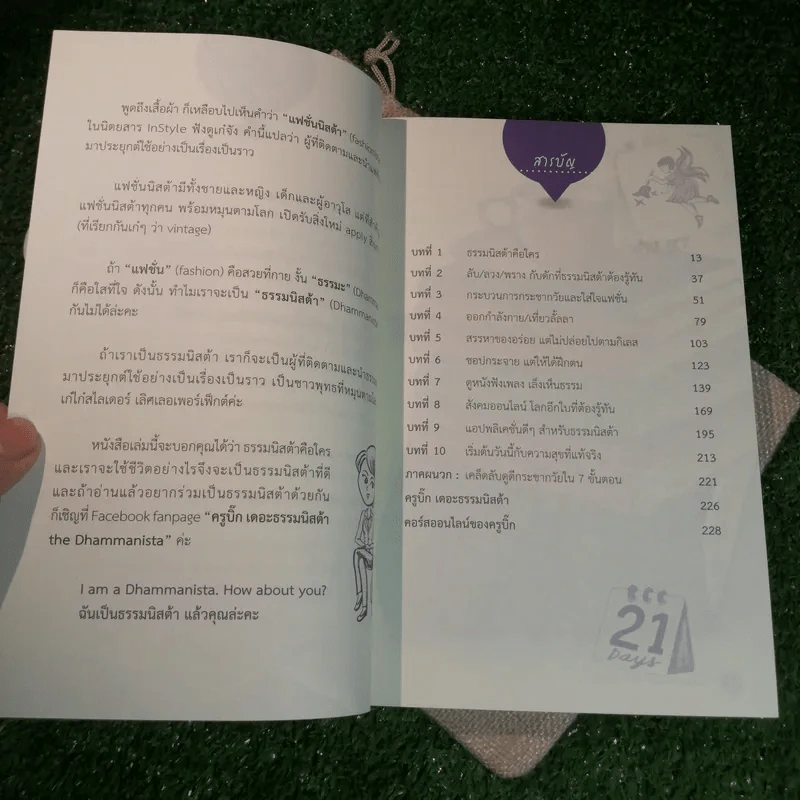 พูดถึงเสื้อผ้า ก็เหลือบไปเห็นคำว่า “แฟชั่นนิสต้า”
ในนิตยสาร InStyle ฟังดูเก๋จัง คำนี้แปลว่า ผู้ที่ติดตามและนำ
มาประยุกต์ใช้อย่างเป็นเรื่องเป็นราว
แฟชั่นนิสต้ามีทั้งชายและหญิง เด็กและผู้อาวุโส แต่ที่
แฟชั่นนิสต้าทุกคน พร้อมหมุนตามโลก เปิดรับสิ่งใหม่ apply
(ที่เรียกกันเก๋ๆ ว่า vintage)
ถ้า “แฟชั่น” (fashion) คือสวยที่กาย งั้น “ธรรมะ”
ก็คือใสที่ใจ ดังนั้น ทำไมเราจะเป็น “ธรรมนิสต้า” (Dhammanista)
กันไม่ได้ล่ะคะ
ถ้าเราเป็นธรรมนิสต้า เราก็จะเป็นผู้ที่ติดตามและนำธรรมะ
มาประยุกต์ใช้อย่างเป็นเรื่องเป็นราว เป็นชาวพุทธที่หมุนตามโลก
เก๋ไก๋สไลเดอร์ เลิศเลอเพอร์เฟ็กต์ค่ะ
หนังสือเล่มนี้จะบอกคุณได้ว่า ธรรมนิสต้าคือใคร
และเราจะใช้ชีวิตอย่างไรจึงจะเป็นธรรมนิสต้าที่ดี
และถ้าอ่านแล้วอยากร่วมเป็นธรรมนิสต้าด้วยกัน
ก็เชิญที่ Facebook fanpage “ครูบิ๊ก เดอะธรรมนิสต้า
the Dhammanista” ค่ะ
I am a Dhammanista. How about you?
ฉันเป็นธรรมนิสต้า แล้วคุณล่ะคะ
สารบัญ
บทที่ 1 ธรรมนิสต้าคือใคร 13
บทที่ 2 ลับ/ลวง/พราง กับดักที่ธรรมนิสต้าต้องรู้ทัน 37
บทที่ 3 กระบวนการกระชากวัยและใส่ใจแฟชั่น 51
บทที่ 4 ออกกำลังกาย/เที่ยวลั้ลลา 79
บทที่ 5 สรรหาของอร่อย แต่ไม่ปล่อยไปตามกิเลส 103
บทที่ 6 ชอปกระจาย แต่ให้ได้ฝึกตน 123
บทที่ 7 ดูหนังฟังเพลง เล็งเห็นธรรม 139
บทที่ 8 สังคมออนไลน์ โลกอีกใบที่ต้องรู้ทัน 169
บทที่ 9 แอปพลิเคชั่นดีๆ สำหรับธรรมนิสต้า 195
บทที่ 10 เริ่มต้นวันนี้กับความสุขที่แท้จริง 213
ภาคผนวก : เคล็ดลับดูดีกระชากวัยใน 7 ขั้นตอน 221
ครูบิ๊ก เดอะธรรมนิสต้า 226
คอร์สออนไลน์ของครูบิ๊ก 228
21
Days